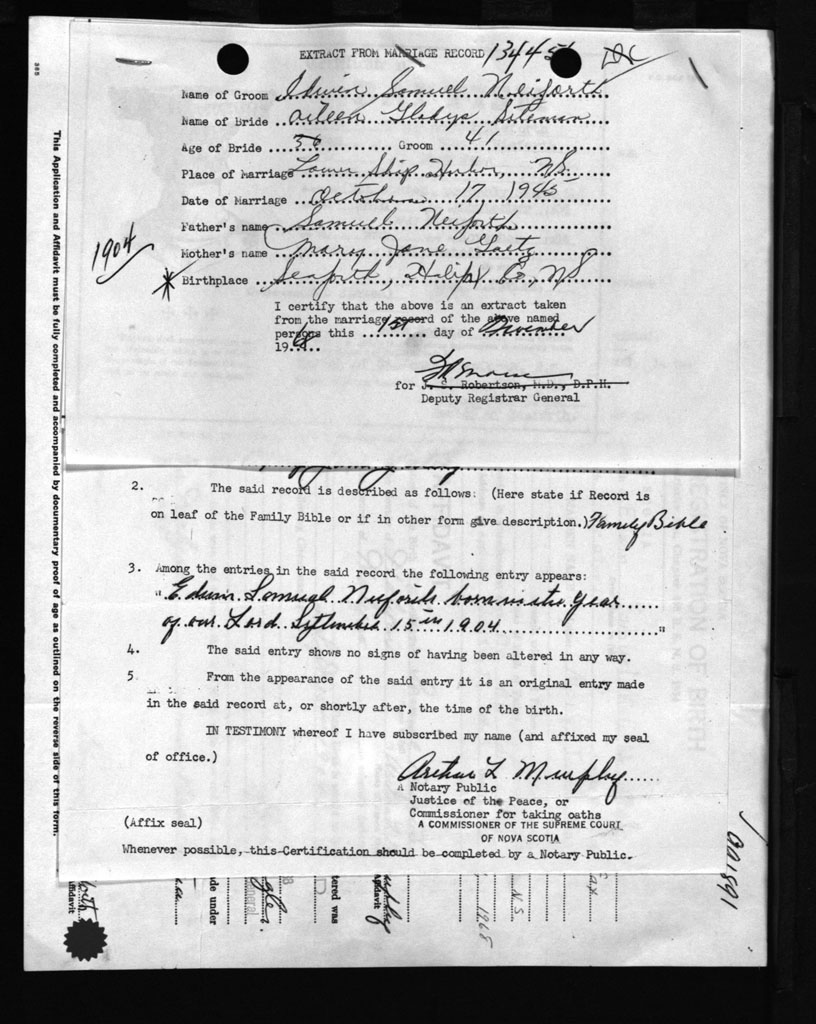 EXTRACT FROM MARRIAGE RECORD 13445
Name of Groom Edwin Samuel Neiforth
Name of Bride Aileen Gladys Siteman
Age of Bride 36 Groom 41
Place of Marriage Lower Ship Harbor, N.S.
Date of Marriage October 17 1945
Father's name Samuel Neiforth
Mother's name Mary Jane Gaetz
1904
* Birthplace Seaforth, Halifax Co., N.S
I certify that the above is an extract taken
from the marriage record of the above named
persons this 1st day of November
1968
for J. S. Robertson, M.D., D.P.H.
Deputy Registrar General
2. The said record is described as follows: (Here state if Record is
on leaf of the Family Bible or if in other form give description.) Family Bible
3. Among the entries in the said record the following entry appears:
"Edwin Samual Nieforth born in the year
of our Lord September 15th 1904"
4. The said entry shows no signs of having been altered in any way.
5. From the appearance of the said entry it is an original entry made
in the said record at, or shortly after, the time of the birth.
IN TESTIMONY whereof I have subscribed my name (and affixed my seal
of office.)
Arthur L Murphy
A Notary Public
Justice of the Peace, or
Commissioner for taking oaths
A COMMISSIONER OF THE SUPREME COURT
OF NOVA SCOTIA
(Affix seal)
Whenever possible, this Certification should be completed by a Notary Public.
This Application and Affidavit must be fully completed and accompanied by documentary proof of age as outlined on the reverse side of this form.
affidavit
de under
General
tered was
affidavit
N.S.
1968
001891